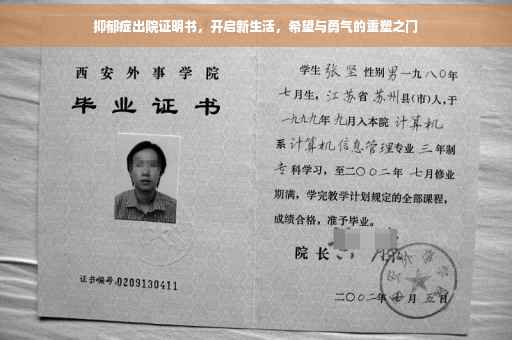 抑郁症出院证明书，开启新生活，希望与勇气的重塑之门
西安外事学院
毕业证书
证书编号:0209130411
学生 张坚 性别 男 一九八〇年
七月生，江苏省 苏州县(市)人，于
一九九九年 九月入本院 计算机
系 计算机信息管理专业 三年制
专科学习，至二〇〇二年 七月修业
期满，学完教学计划规定的全部课程，
成绩合格，准予毕业。
院长
二〇〇二年 月五日